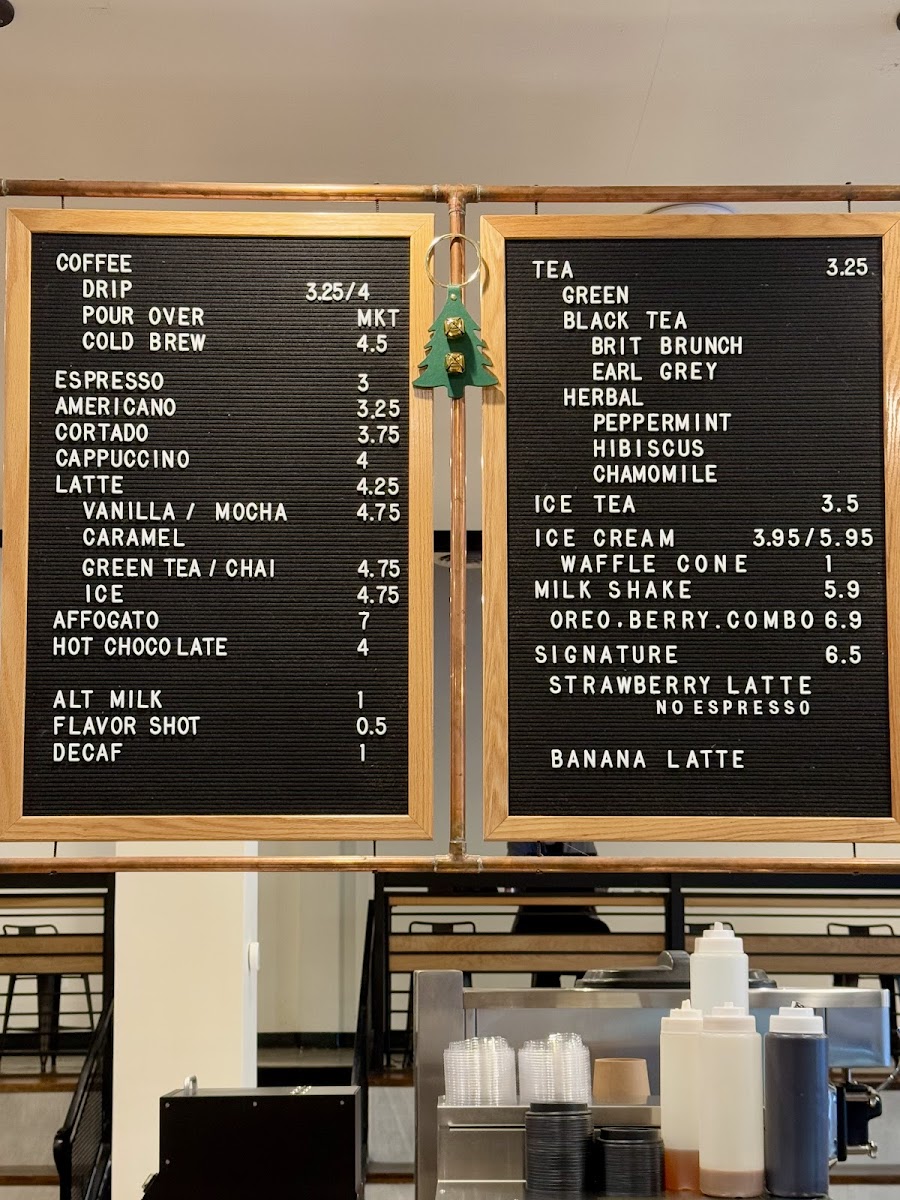 COFFEE
DRIP 3.25/4
POUR OVER MKT
COLD BREW 4.5
ESPRESSO 3
AMERICANO 3.25
CORTADO 3.75
CAPPUCCINO 4
LATTE 4.25
VANILLA / MOCHA 4.75
CARAMEL
GREEN TEA / CHAI 4.75
ICE 4.75
AFFOGATO 7
HOT CHOCOLATE 4
ALT MILK 1
FLAVOR SHOT 0.5
DECAF 1
TEA 3.25
GREEN
BLACK TEA
BRIT BRUNCH
EARL GREY
HERBAL
PEPPERMINT
HIBISCUS
CHAMOMILE
ICE TEA 3.5
ICE CREAM 3.95/5.95
WAFFLE CONE 1
MILK SHAKE 5.9
OREO.BERRY.COMBO 6.9
SIGNATURE 6.5
STRAWBERRY LATTE
NO ESPRESSO
BANANA LATTE